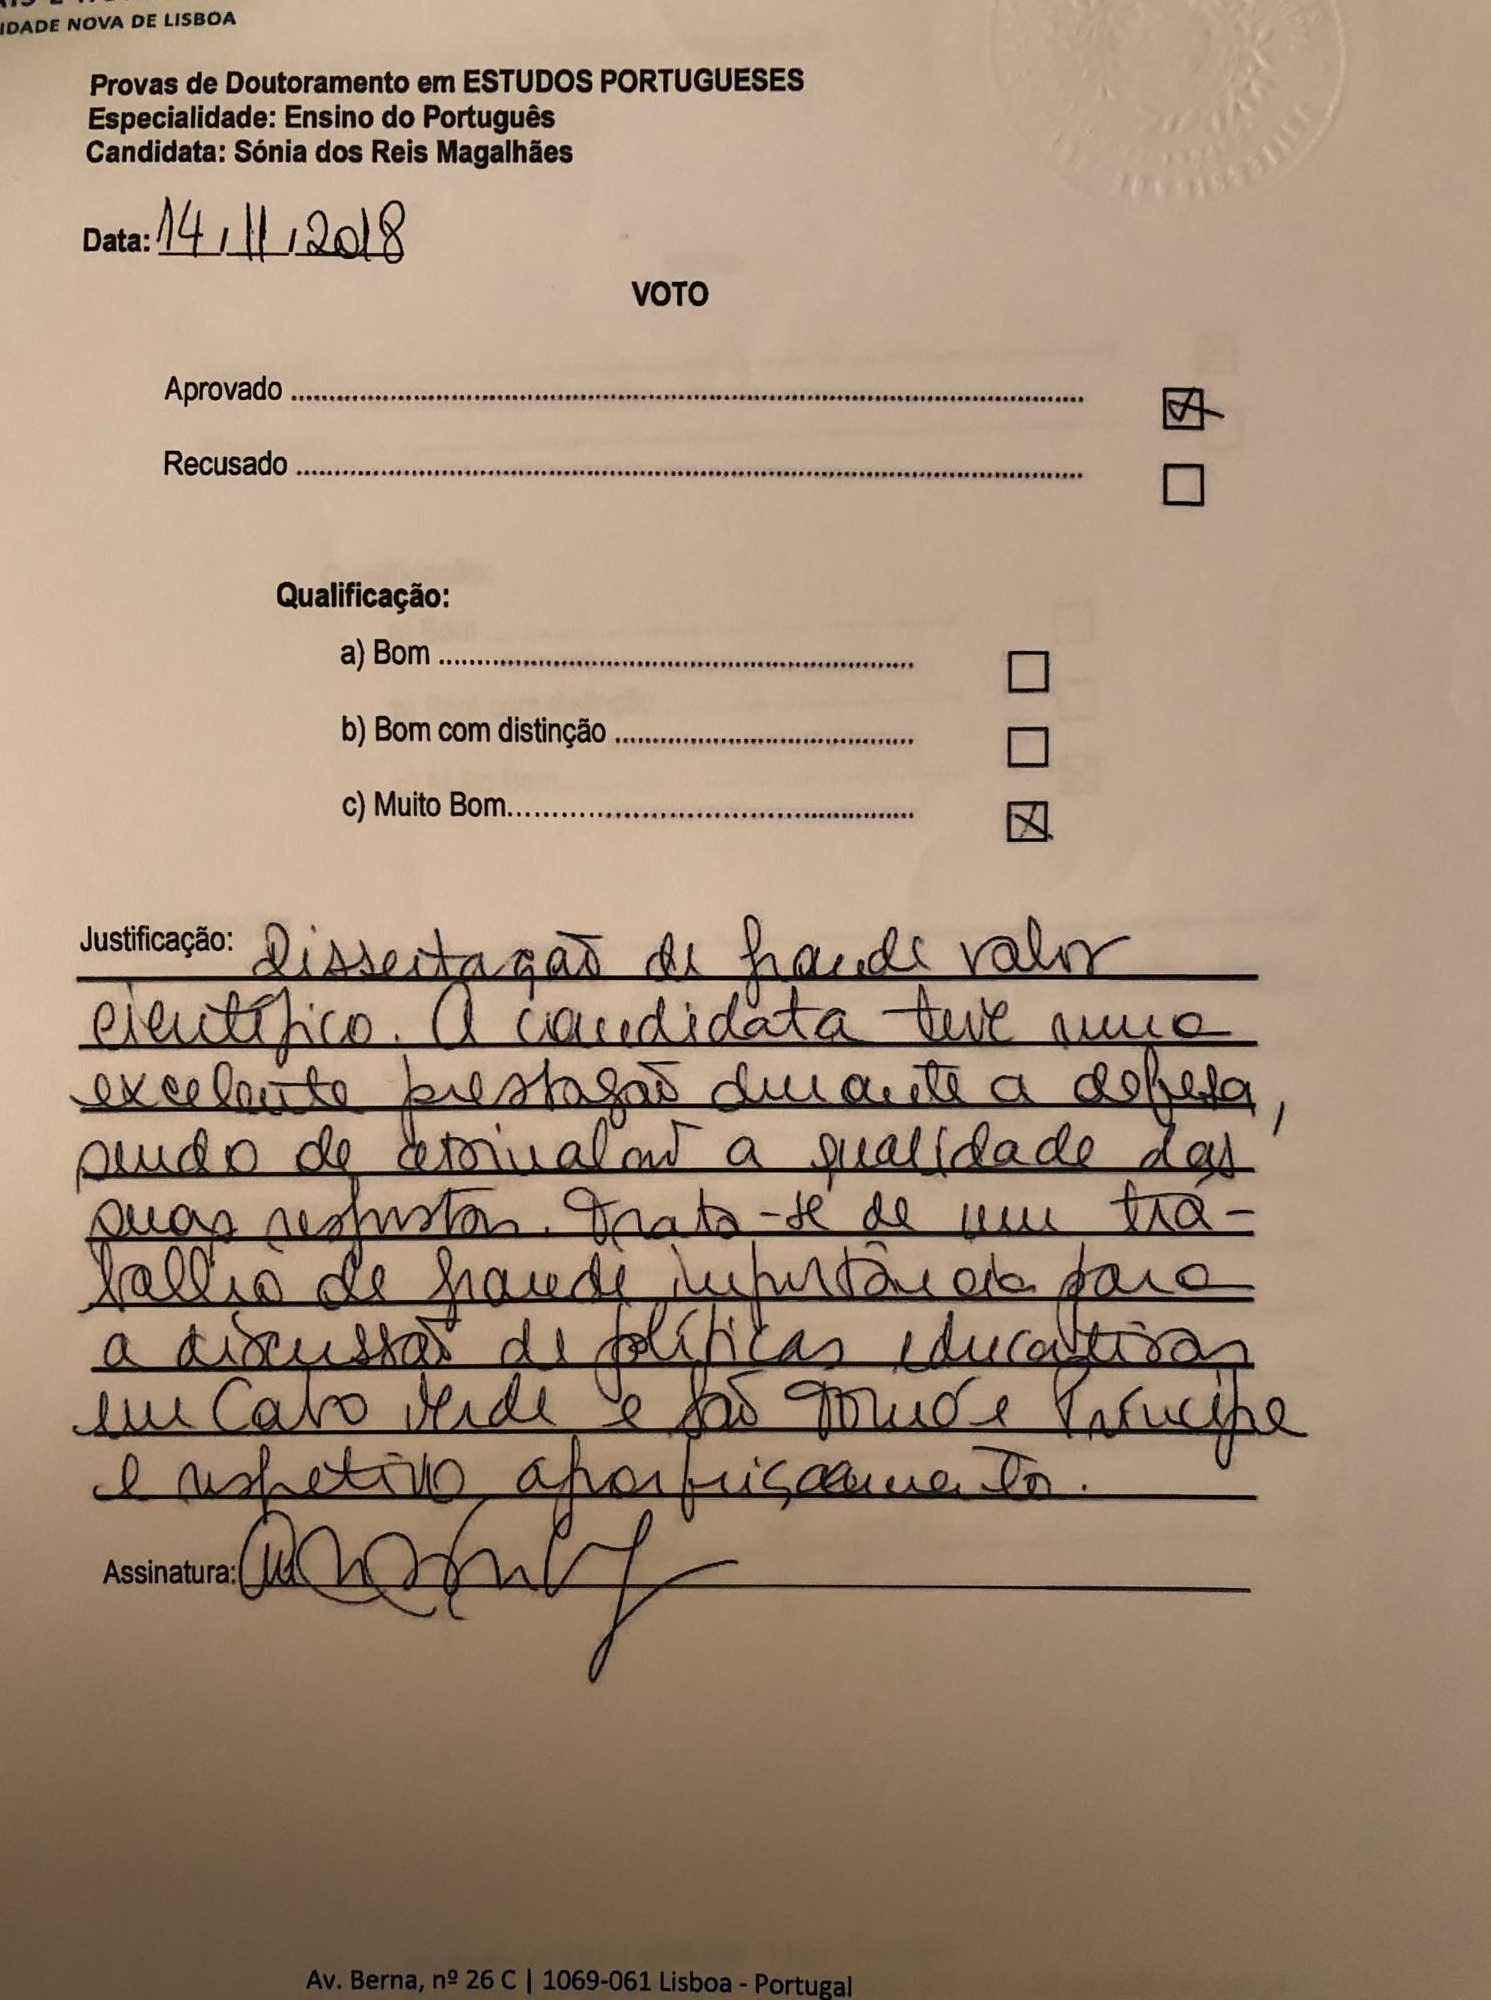 IDADE NOVA DE LISBOA
Provas de Doutoramento em ESTUDOS PORTUGUESES
Especialidade: Ensino do Português
Candidata: Sónia dos Reis Magalhães
Data: 14/11/2018
VOTO
Aprovado
Recusado
Qualificação:
a) Bom
b) Bom com distinção
c) Muito Bom
Justificação: Dissertação de grande valor
científico. A candidata teve uma
excelente prestação durante a defesa,
sendo de assinalar a qualidade das
suas respostas. Trata-se de um tra-
balho de grande importância para
a discussão de políticas educativas
em Cabo Verde e São Tomé e Príncipe
e respetivo aperfeiçoamento.
Assinatura:
Av. Berna, nº 26 C | 1069-061 Lisboa - Portugal